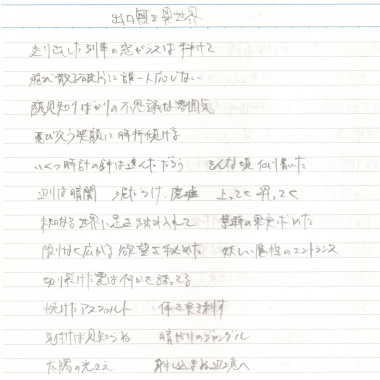 出口無き異世界
走り出した列車の窓ガラスは砕けて
飛び散る破片に誰一人応じない
顔見知りばかりの不思議な雰囲気
飛び交う笑顔に時折傾ける
いくつ時計の針は進んだだろう そんな頃 辿り着いた
辺りは暗闇 上ってく 昇ってく
未知なる世界に足を踏み入れて 禁断の果実
限りなく広がる欲望を秘めた 妖しい魔性のエントランス
切り裂けた雲は何かを誘ってる
焼けたアスファルト 体を突き刺す
見付けは見知らぬ 暗がりのジャングル
太陽の光さえ 射し込まぬ辺境へ